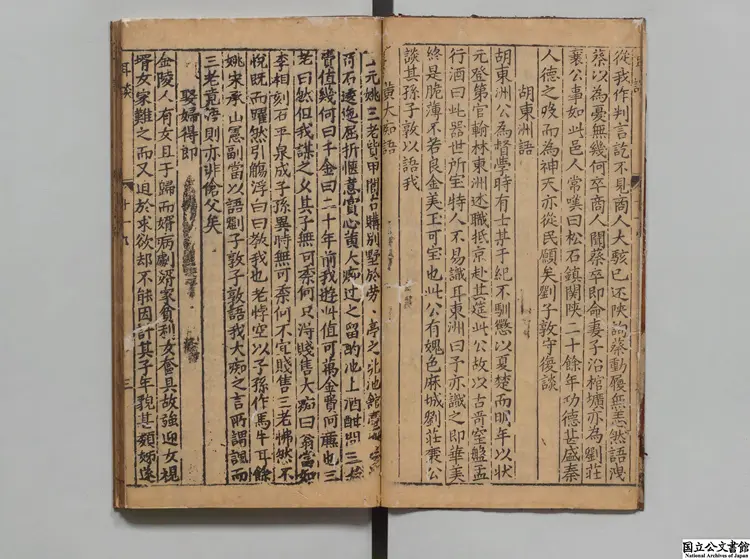 從我作判言訖不見商人大駭已还陝詢蔡動履無恙然語洩
蔡以為憂無幾何卒商人聞蔡卒即命妻子治棺壙亦為劉莊
襄公事如此邑人常嘆曰松石鎮関陝二十餘年功德甚盛秦
人德之歿而為神天亦從民願矣劉子敦守後談
胡東洲語
胡東洲公為督學時有士某干紀不馴懲以夏楚而明年以狀
元登第官翰林東洲述職抵京赴其筵此公故以古窑空盤盂
行酒曰此器世所宝特人不易識耳東洲曰予亦識之即華美
終是脆薄不若良金美玉可宝也此公有媿色麻城劉莊襄公
談其孫子敦以語我
黃大痴語
元姚三老貲甲閭右購別墅於
亭之
池館
奇石逶迤屈折愜意賞心黃大痴过之留酌池上酒酣問三老
費值幾何曰千金曰二十年前我遊此值可萬金費何廉也三
老曰然但我謀之久其子無可柰何只得賤售大痴曰翁當如
李相刻石平泉戒子孫異時無可柰何不宜賤售三老怫然不
悅既而曜然引觴浮白曰教我也老悖空以子孫作馬牛耳餘
姚宋承山憲副當以語劉子敦子敦語我大痴之言所謂諷而
三老竟悟則亦非傖父矣
娶婦得郎
金陵人有女且于歸而婿病劇婿家貪利女奩具故強迎女視
壻女家難之而又迫於求欲却不能因計其子年貌甚類姊遂
耳談
三
国立公文書館
National Archives of Japan